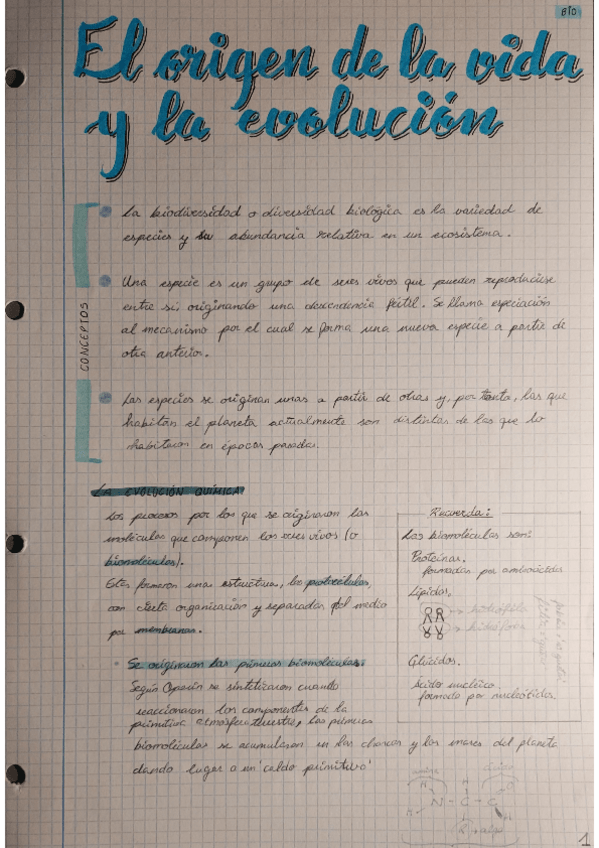 BIO
El origen de la vida
y la evolución
CONCEPTOS
La biodiversidad o diversidad biológica es la variedad de
especies y su abundancia relativa en un ecosistema.
Una especie es un grupo de seres vivos que pueden reproducirse
entre sí, originando una descendencia fértil. Se llama especiación
al mecanismo por el cual se forma una nueva especie a partir de
otra anterior.
Las especies se originan unas a partir de otras y, por tanto, las que
habitan el planeta actualmente son distintas de las que lo
habitaron en épocas pasadas.
LA EVOLUCIÓN QUÍMICA
Los procesos por los que se originaron las
moléculas que componen los seres vivos (o
biomoléculas).
Estas formaron una estructura, las protocélulas,
con cierta organización y separadas del medio
por membranas.
Se originaron las primeras biomoléculas:
Según Oparin se sintetizaron cuando
reaccionaron los componentes de la
primitiva atmósfera terrestre, las primeras
biomoléculas se acumularon en las charcas y los mares del planeta
dando lugar a un 'caldo primitivo'
Recuerda:
Las biomoléculas son:
Proteínas.
formadas por aminoácidos
Lípidos.
hidrófila
hidrófoba
Glúcidos.
Ácido nucleico.
formado por nucleótidos.
H
H N C C
R
1